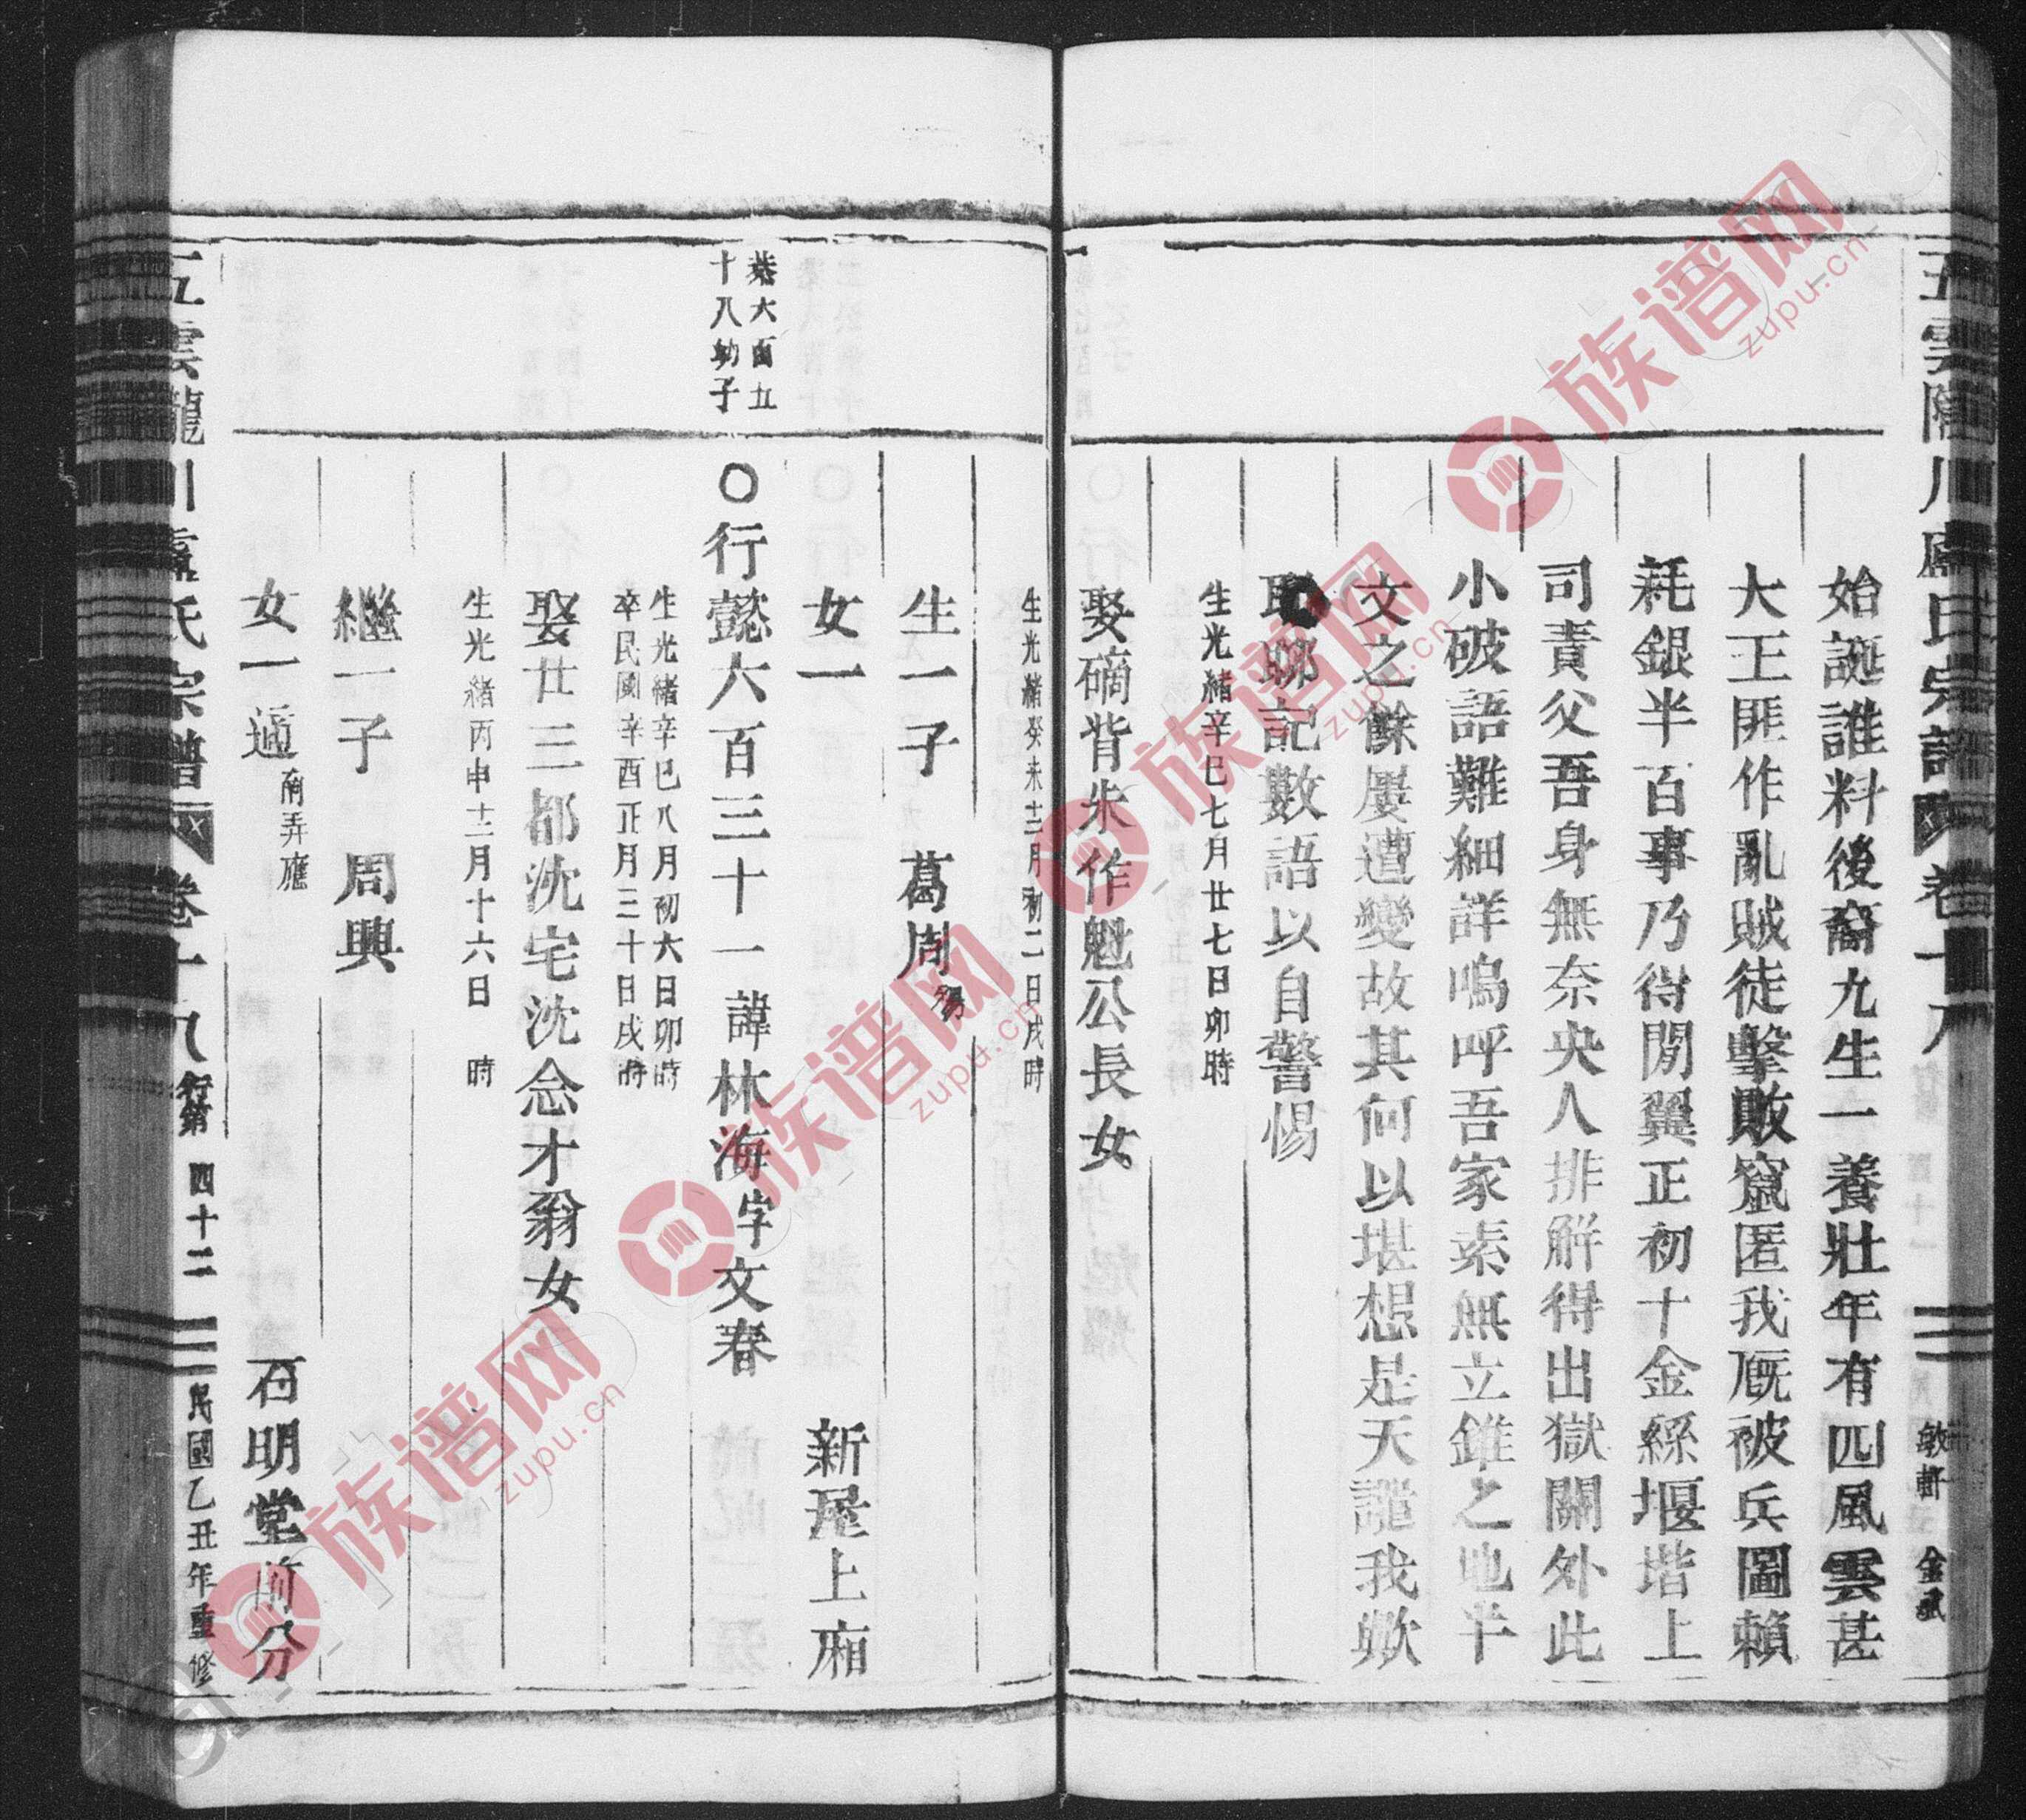 五雲隴川盧氏宗譜 卷十八
敏軒 金斌
始誕誰料後裔九生一養壯年有四風雲甚
大王匪作亂賊徒擊敗竄匿我厩被兵圖賴
耗銀半百事乃得閒翼正初十金絲堰堦上
司責父吾身無奈央人排解得出獄關外此
小破語難細詳嗚呼吾家素無立錐之地半
文之餘屢遭變故其何以堪想是天譴我歟
聊記數語以自警惕
生光緒辛巳七月廿七日卯時
娶磆背朱作魁公長女
生光緒癸未十二月初二日戌時
生一子 葛周殤
女一 新屋上廂
葵六百五
十八幼子
〇行懿六百三十一諱林海字文春
生光緒辛巳八月初六日卯時
卒民國辛酉正月三十日戌時
娶廿三都沈宅沈念才翁女
生光緒丙申十二月十六日 時
繼一子 周興
女一適南弄應 石明堂前分
五雲隴川盧氏宗譜 卷十八 行第 四十二 民國乙丑年重修
族谱网
zupu.cn
族谱网
zupu.cn
族谱网
zupu.cn
族谱网
zupu.cn